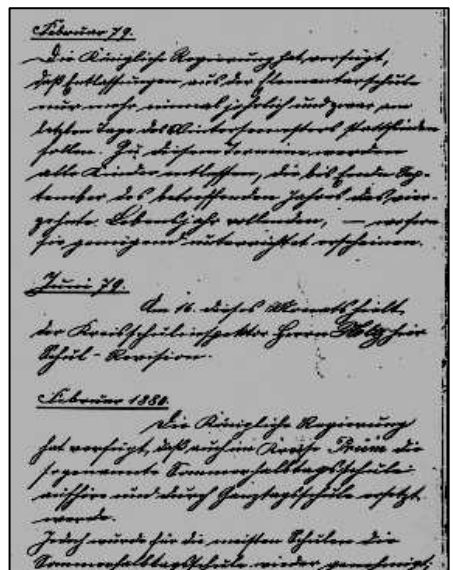 Februar 79.
Die Königliche Regierung hat verfügt,
daß Entlassungen aus der Elementarschule
nur mehr einmal jährlich und zwar am
letzten Tage des Wintersemesters stattfinden
sollen. Zu diesem Termine werden
alle Kinder entlassen, die bis Ende Sep-
tember des betreffenden Jahres das vier-
zehnte Lebensjahr vollenden, — wofern
sie genügend unterrichtet erscheinen.
Juni 79.
Am 16. dieses Monats hielt
der Kreisschulinspektor Herr hier
Schul-Revision.
Februar 1880.
Die Königliche Regierung
hat verfügt, daß auch im Kreise Prüm die
sogenannte Sommerhalbtagsschule
aufhöre und durch Ganztagsschule ersetzt
werde.
Jedoch wurde für die meisten Schulen die
Sommerhalbtagsschule wieder genehmigt;